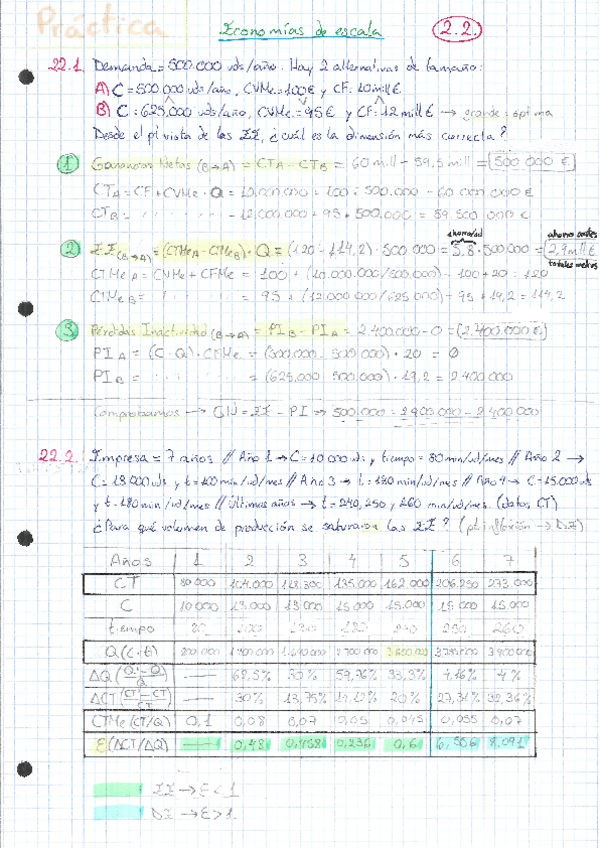 Práctica
Economías de escala
2.2.
22.1. Demanda = 500.000 uds/año. Hay 2 alternativas de tamaño:
A) C = 500.000 uds/año, CVMe = 100€ y CF: 10 mill €
B) C = 625.000 uds/año, CVMe = 95€ y CF = 12 mill € → grande: óptima
Desde el p. vista de las EE, ¿cuál es la dimensión más correcta?
1 Ganancias Netas (B→A) = CTA - CTB = 60 mill - 59,5 mill = 500 000 €
CTA = CF + CVMe · Q = 10.000.000 + 100 · 500.000 = 60 000 000 €
CTB = = 12.000.000 + 95 · 500.000 = 59 500 000 €
ahorro/ud
ahorro costes
2 EE (B→A) = (CTMeA - CTMeB) · Q = (120 - 114,2) · 500 000 = 5,8 · 500.000 = 2,9 mill €
totales
CTMeA = CVMe + CFMe = 100 + (10.000.000/500.000) = 100 + 20 = 120
CTMeB = = 95 + (12 000.000/625 000) = 95 + 19,2 = 114,2
3 Pérdidas Inactividad (B→A) = PIB - PIA = 2 400.000 - 0 = 2.400.000 €
PIA = (C - Q) · CFMe = (500.000 - 500 000) · 20 = 0
PIB = = (625.000 - 500.000) · 19,2 = 2 400.000
Comprobamos → GN = EE - PI → 500.000 = 2 900.000 - 2 400.000
22.2. Empresa = 7 años // Año 1 → C = 10 000 uds y tiempo = 80 min/ud/mes // Año 2 →
C = 13 000 uds y t = 100 min/ud/mes // Año 3 → t = 130 min/ud/mes // Año 4 → C = 15.000 uds
y t = 180 min/ud/mes // Últimos años → t = 240, 250 y 260 min/ud/mes. (datos CT)
¿Para qué volumen de producción se saturarán las EE? (pt inflexión → DE)
Años 1 2 3 4 5 6 7
CT 80 000 104.000 118.300 135.000 162.000 206.250 273.000
C 10 000 13.000 13 000 15 000 15.000 15 000 15.000
tiempo 80 100 130 180 240 250 260
Q (C·t) 800 000 1 300 000 1.690 000 2 700 000 3.600.000 3.750.000 3 900 000
ΔQ (Q'-Q/Q) — 62,5% 30% 59,76% 33,3% 4,16% 4%
ΔCT (CT'-CT/CT) — 30% 13,75% 14,12% 20% 27,31% 32,36%
CTMe (CT/Q) 0,1 0,08 0,07 0,05 0,045 0,055 0,07
E (ΔCT/ΔQ) — 0,48 0,458 0,236 0,6 6,556 8,091
EE → E < 1
DE → E > 1